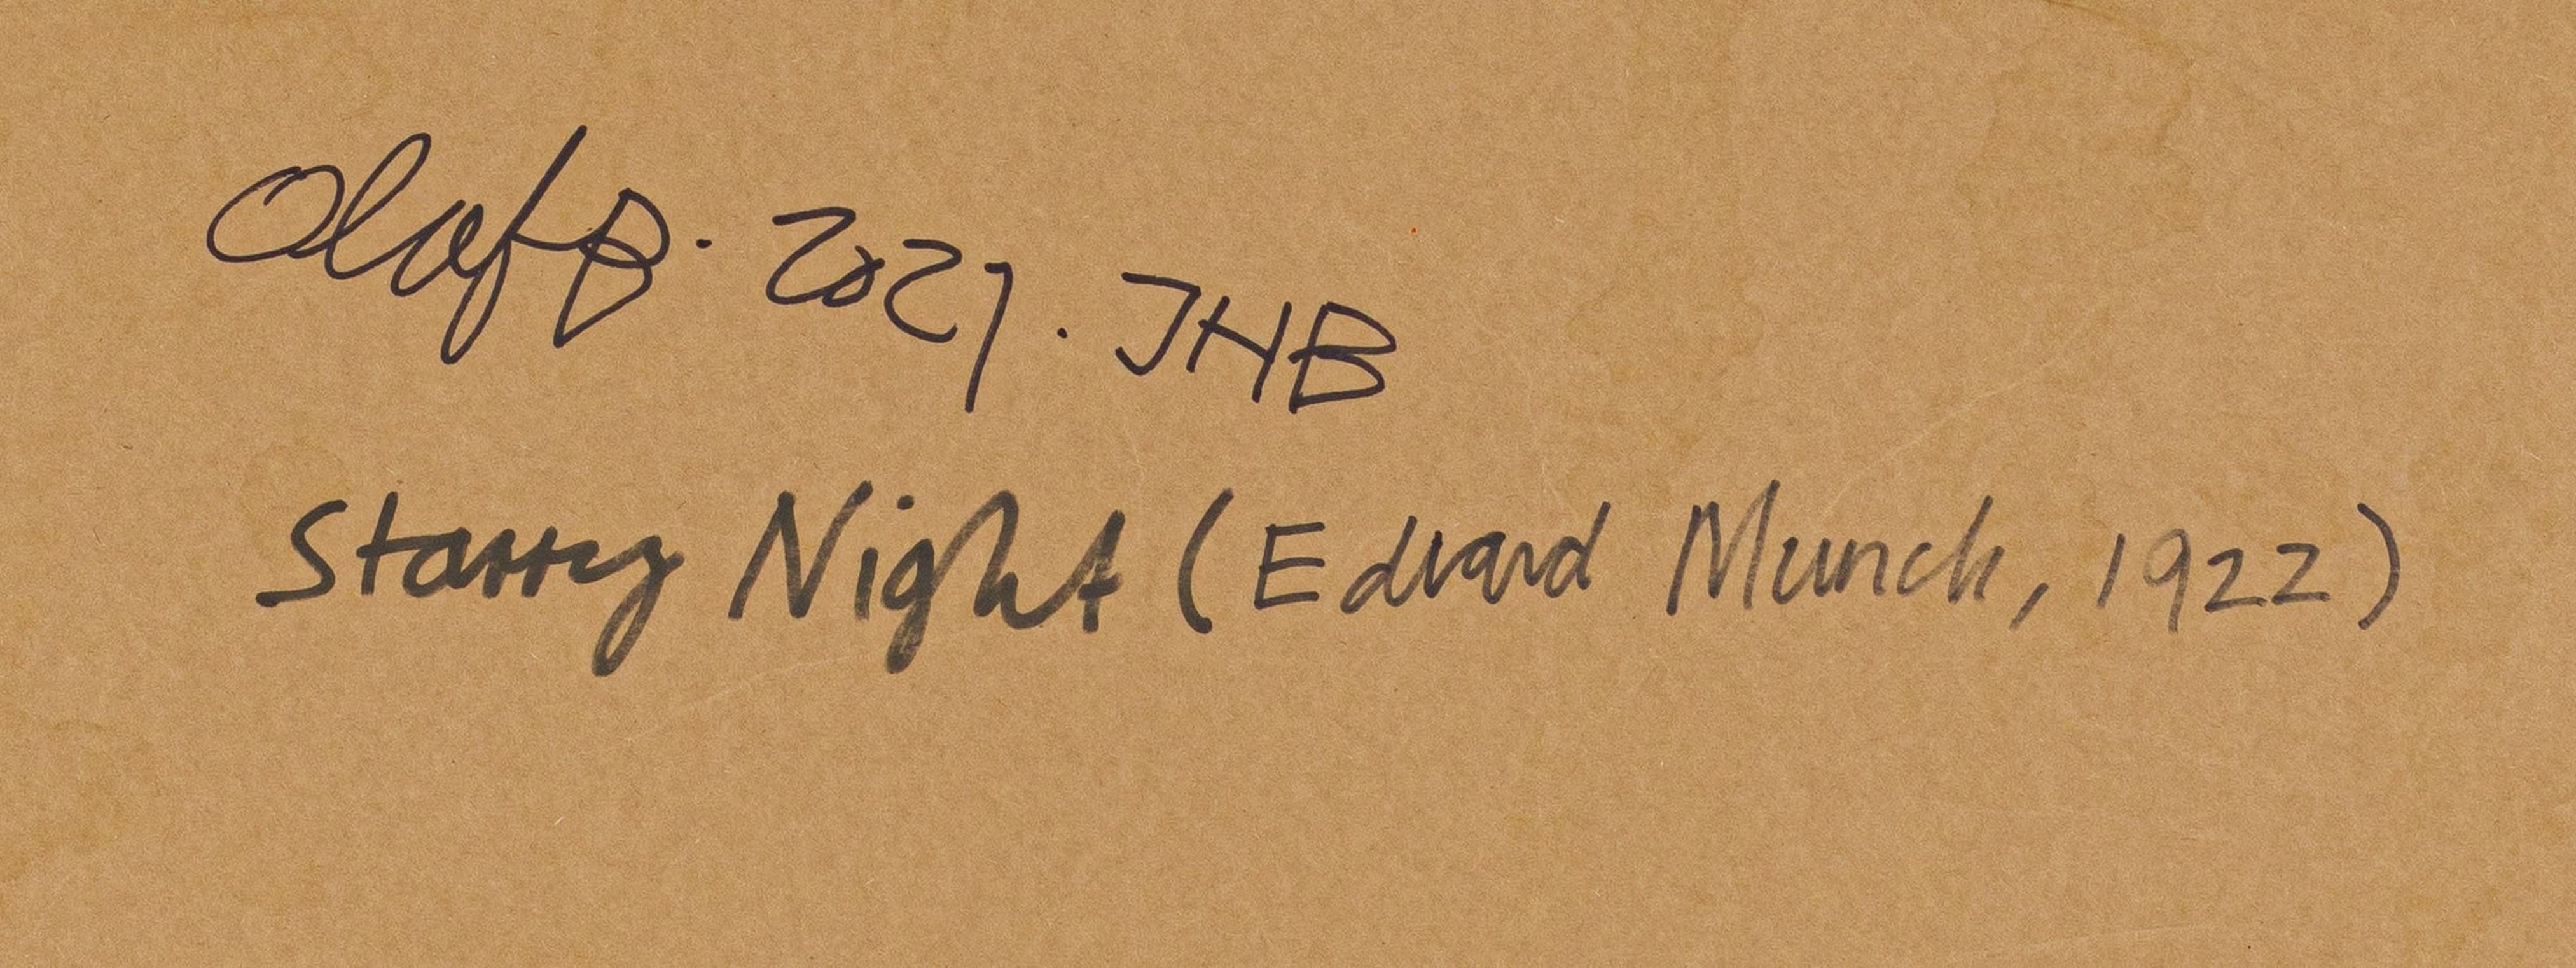 Olaf B. 2021. JHB
Starry Night (Edvard Munch, 1922)